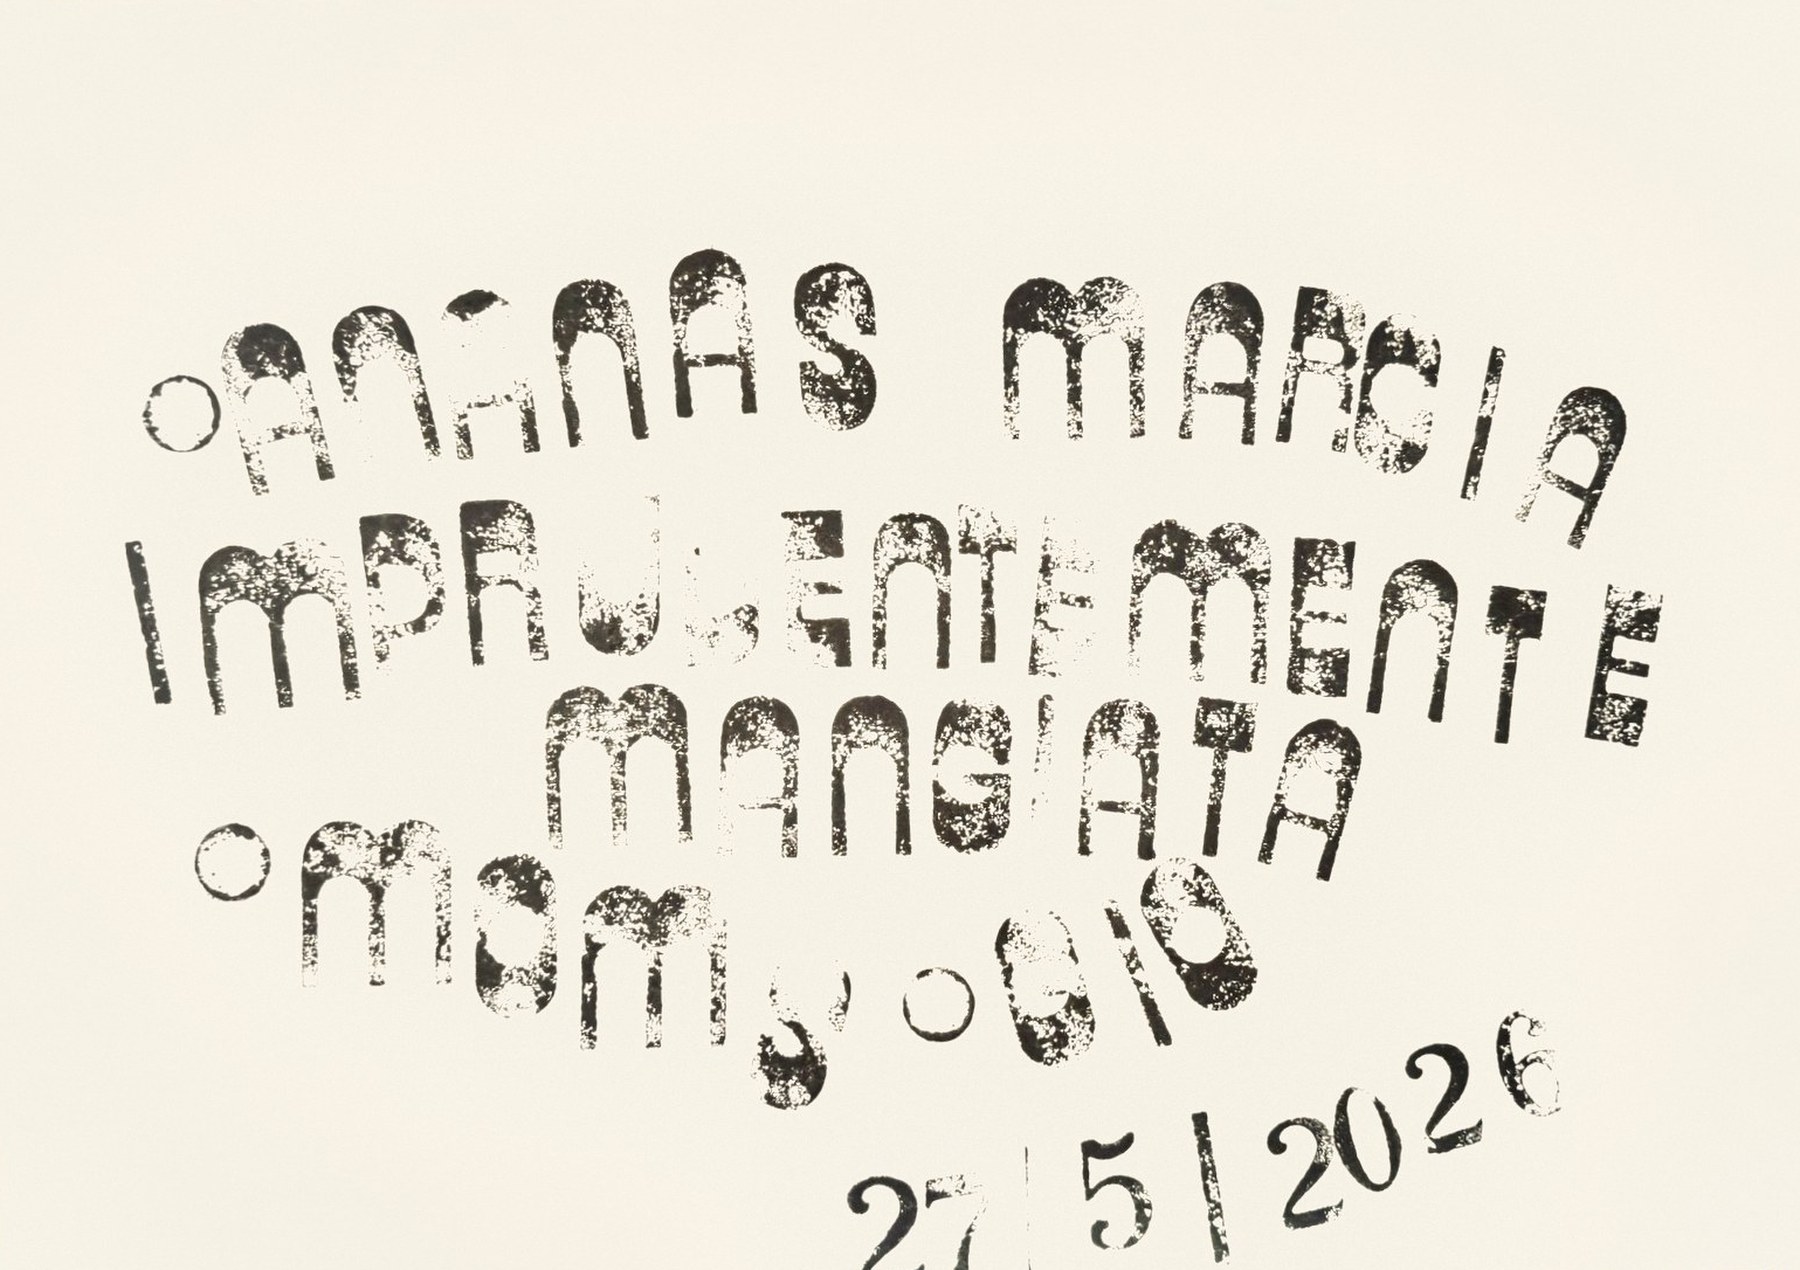 °ANANAS MARCIA
IMPRUDENTEMENTE
MANGIATA
°MOMY °GIO
27|5|2026